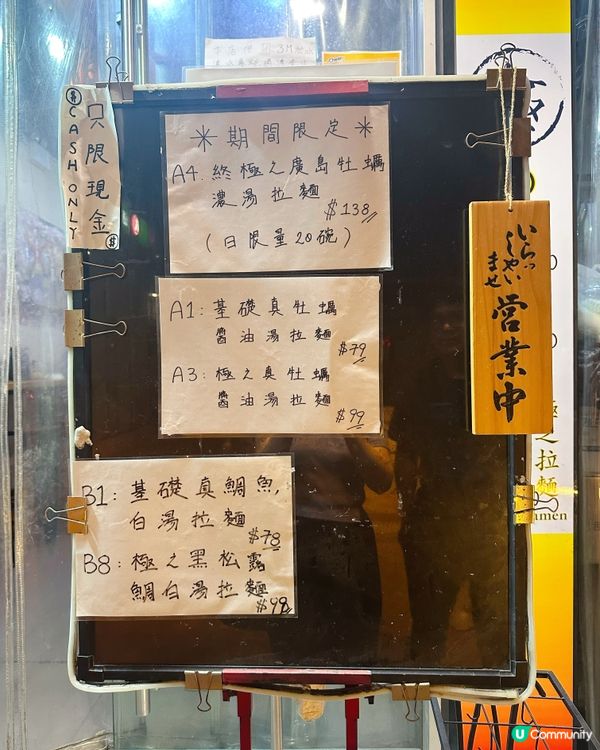 只限現金
$CASH ONLY$
＊期間限定＊
A4. 終極之廣島牡蠣
濃湯拉麵
$138
(日限量20碗)
A1: 基礎真牡蠣
醬油湯拉麵
$79
A3: 極之真牡蠣
醬油湯拉麵
$99
B1: 基礎真鯛魚,
白湯拉麵
$78
B8: 極之黑松露
鯛白湯拉麵
$99
いらっしゃいませ
営業中
極之拉麵
U Community